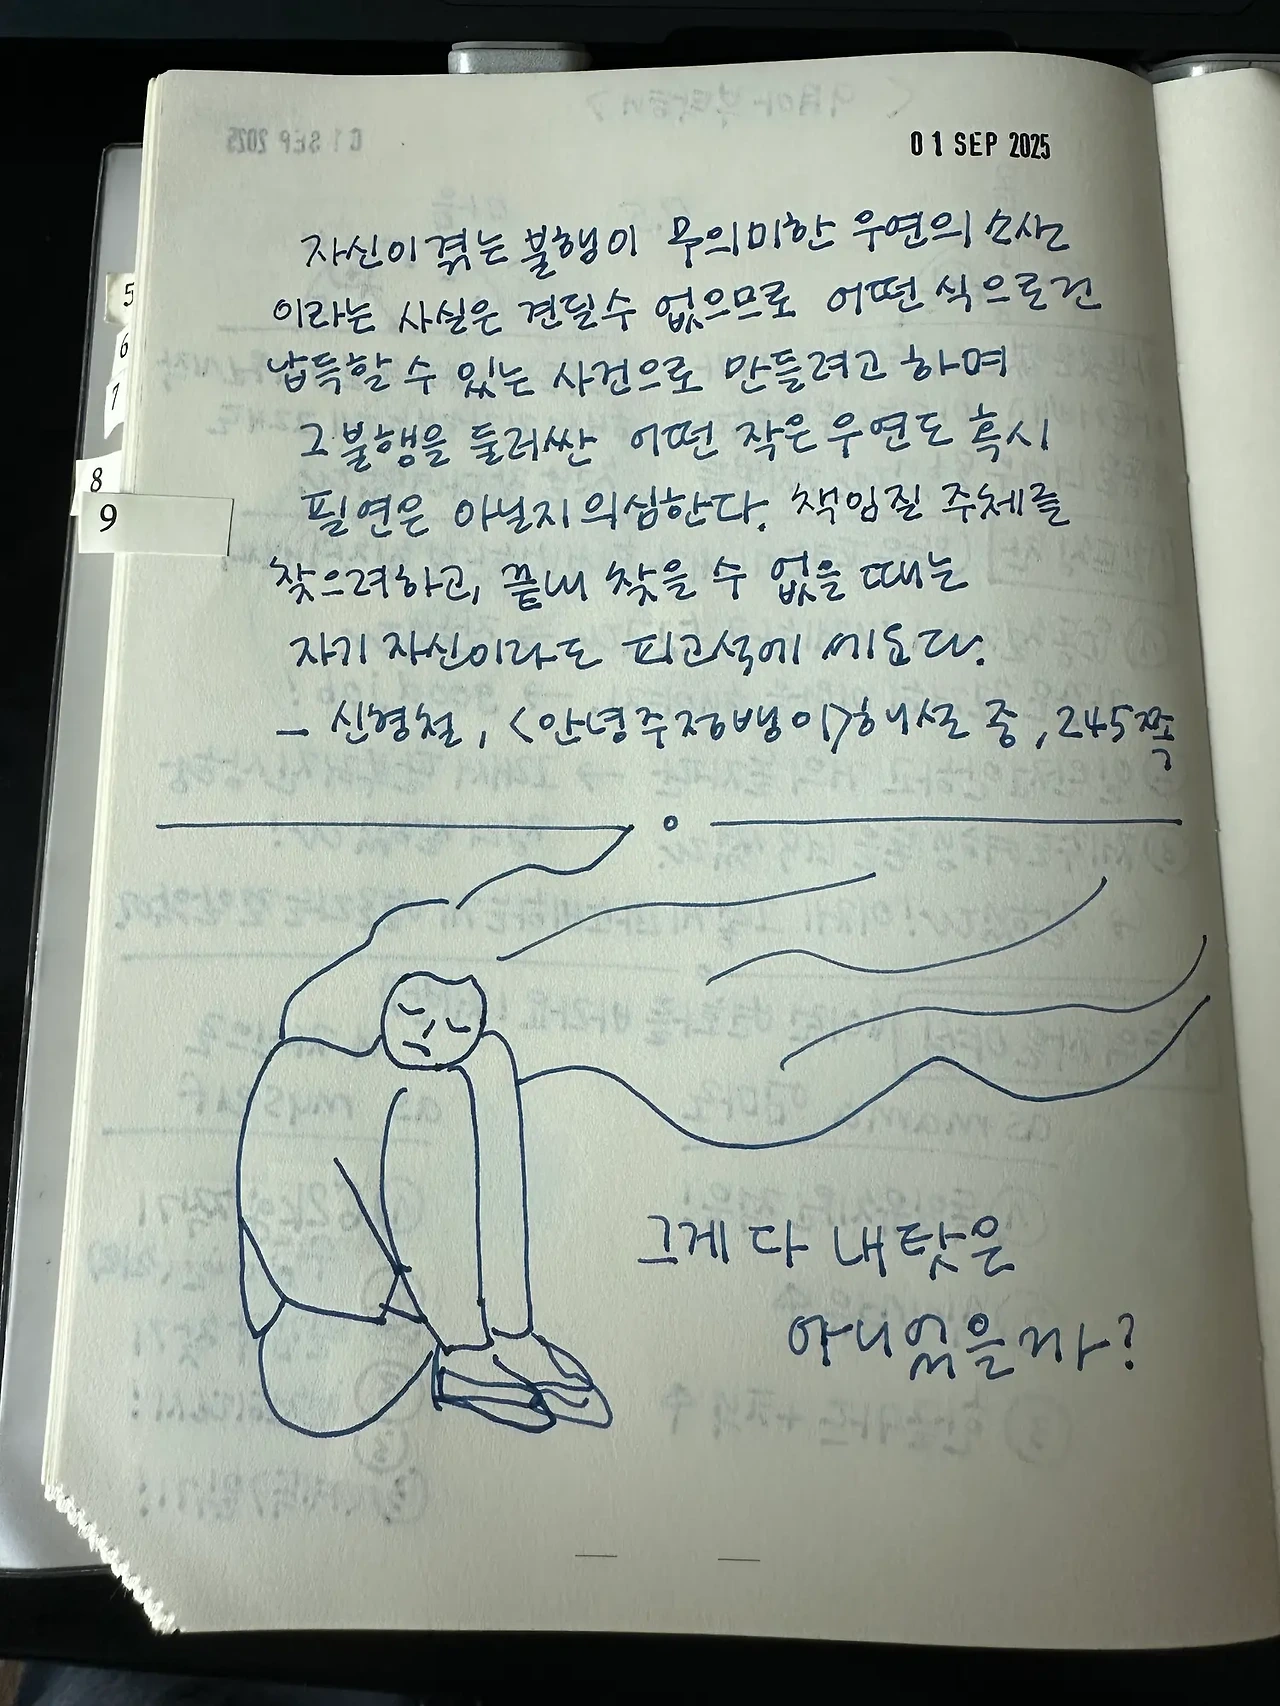 01 SEP 2025
자신이 겪는 불행이 무의미한 우연의 소산
이라는 사실은 견딜 수 없으므로 어떤 식으로건
납득할 수 있는 사건으로 만들려고 하며
그 불행을 둘러싼 어떤 작은 우연도 혹시
필연은 아닐지 의심한다. 책임질 주체를
찾으려하고, 끝내 찾을 수 없을 때는
자기 자신이라도 피고석에 세운다.
- 신형철, <안녕 주정뱅이> 해설 중, 245쪽
5
6
7
8
9
그게 다 내 탓은
아니었을까?